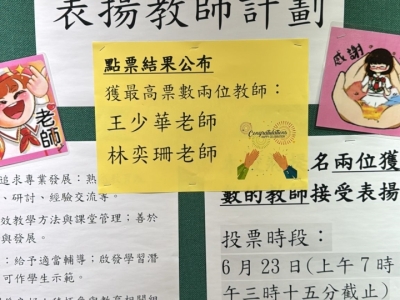 表揚教師計劃
點票結果公布
獲最高票數兩位教師：
王少華老師
林奕珊老師
Congratulations
老師
感謝
追求專業發展：熱
、研討、經驗交流等。
效教學方法與課堂管理；善於
與發展。
：給予適當輔導；啟發學習潛
可作學生示範。
名兩位獲
數的教師接受表揚
投票時段：
6 月 23 日(上午 7 時
午三時十五分截止)